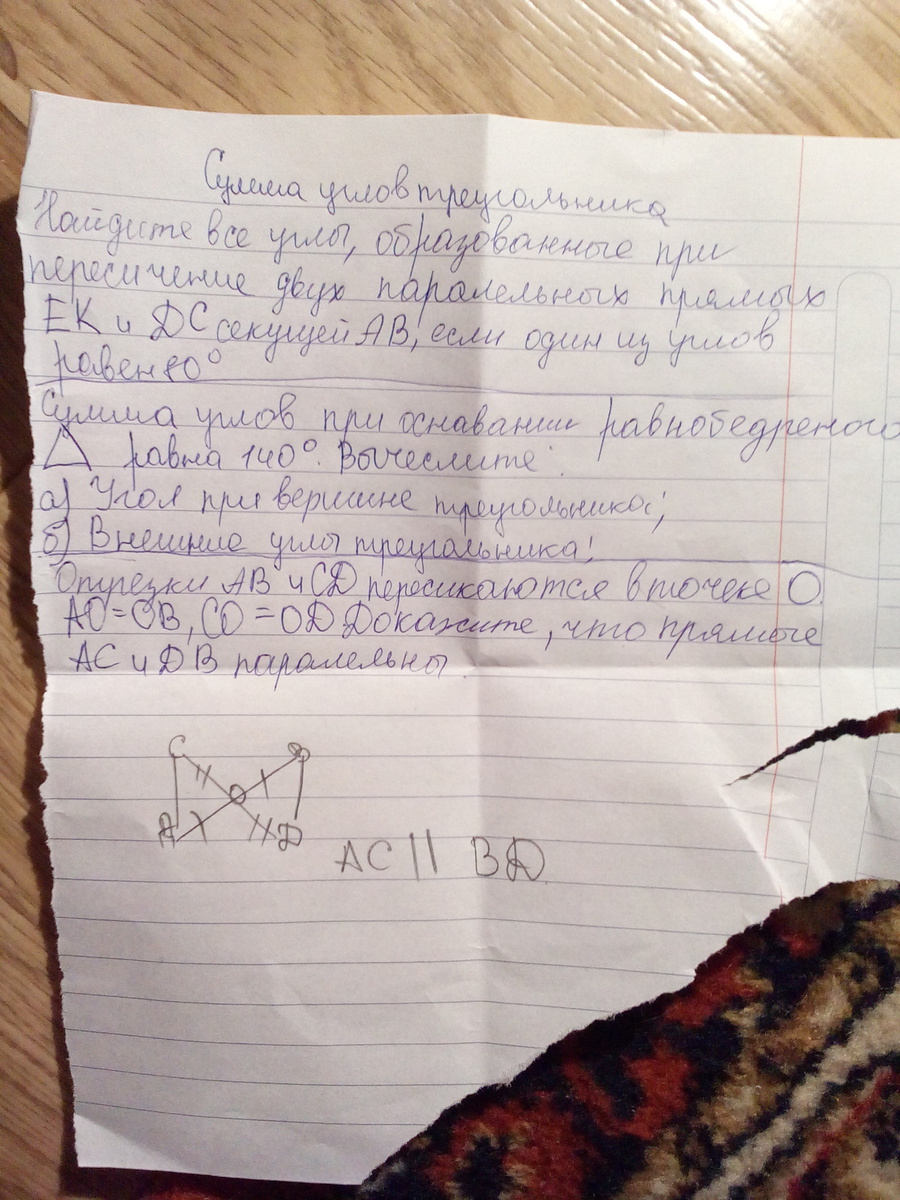 Сумма углов треугольника
Найдите все углы, образованные при
пересичение двух паралельных прямых
EK и DC секущей AB, если один из углов
равен 80°
Сумма углов при основании равнобедреного
△ равна 140°. Вычеслите:
а) Угол при вершине треугольника;
б) Внешние углы треугольника!
Отрезки AB и CD пересикаются в точеке O.
AO=OB, CO=OD Докажите, что прямые
AC и DB паралельны
C B
O
A D
AC || BD